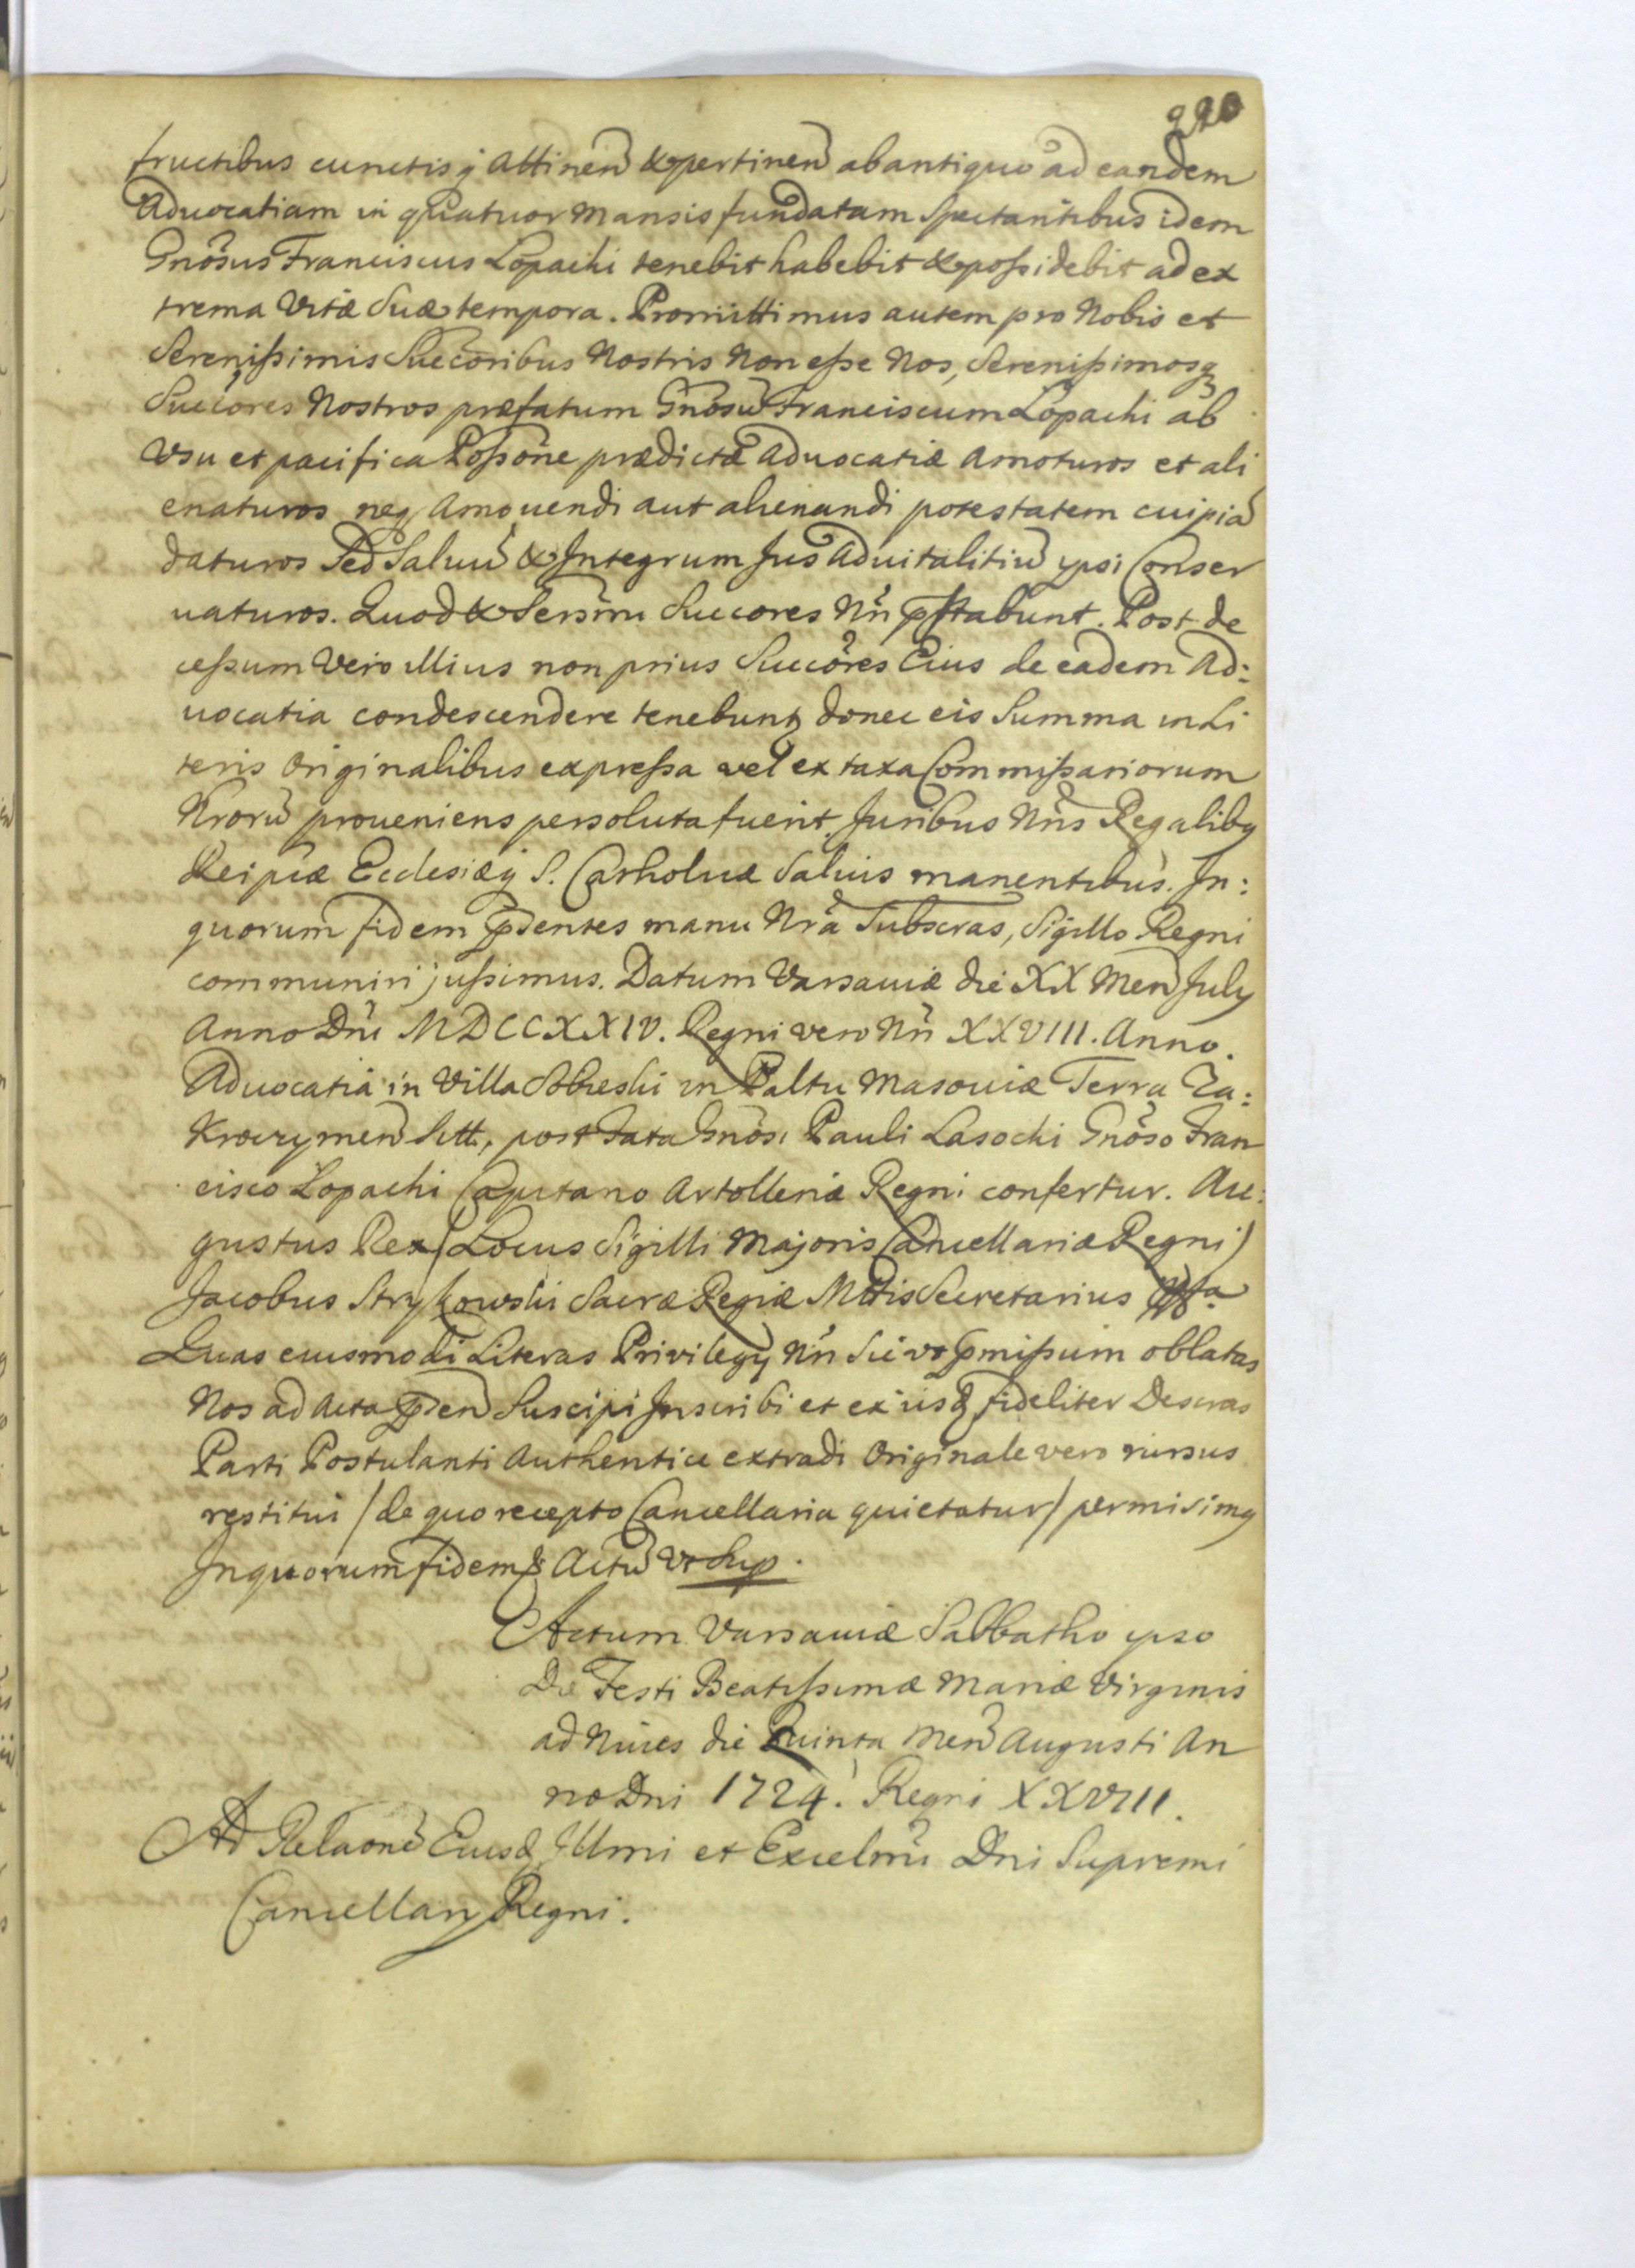 220
fructibus cunctisq̃ Attinen̄ & pertinen̄ ab antiquo ad eandem
Aduocatiam in quatuor Mansis fundatam Spectantibus idem
Gnōsus Franciscus Łopacki tenebit habebit & possidebit ad ex
trema Vitæ Suæ tempora. Promittimus autem pro Nobis et
Serenissimis Succōribus Nostris Non esse Nos, Serenissimosq̃
Succōres Nostros præfatum Gnōsū Franciscum Łopacki ab
Vsu et pacifica Possōne prædictæ Aduocatiæ Amoturos et ali
enaturos neq̃ Amouendi aut alienandi potestatem cuipiā
daturos Sed Saluū & Integrum Jus Aduitalitiū ypsi Conser
uaturos. Quod & Serm̄i Succores Nri p̄stabunt. Post de
cessum Vero illius non prius Succōres Eius de eadem Ad:
uocatia condescendere tenebunt̃ donec eis Summa in Li
teris Originalibus expressa vel ex taxa Commissariorum
Nrorū proueniens persoluta fuerit. Juribus Nris Regalibq
Reipcæ Ecclesiæq̃ S. Catholicæ Saluis manentibus. In:
quorum fidem p̄dentes manu Nrā Subscras, Sigillo Regni
communiri jussimus. Datum Varsauiæ die XX Men̄ July
Anno Dni MDCCXXIV. Regni vero Nri XXVIII. Anno.
Aduocatia in Villa in Paltu Masouiæ Terra Za:
Kroczymen̄ Sitt, post fata Gnōsi Pauli Lasocki Gnōso Fran
cisco Łopacki Capitano Artolleriæ Regni confertur. Au:
gustus Rex (Locus Sigilli Majoris Cancellariæ Regni)
Jacobus Strykowski Sacræ Regiæ Mttis Secretarius
Quas eiusmodi Literas Privilegy Nri Sic vt p̄missum oblatas
Nos ad Acta p̄den̄ Suscipi Inscribi et ex iisd fideliter Descras
Parti Postulanti Authentice extradi Originale vero rursus
restitui (de quo recepto Cancellaria quietatur) permisimq
In quorum fidem & Actū Vt Sup.
Actum Varsauiæ Sabbatho ypso
Die Festi Beatissimæ Mariæ Virginis
ad Niues die Quinta Men̄ Augusti An
no Dni 1724. Regni XXVIII.
Ad Relaonē Eiusd Illmi et Excelmi Dni Supremi
Cancellary Regni.